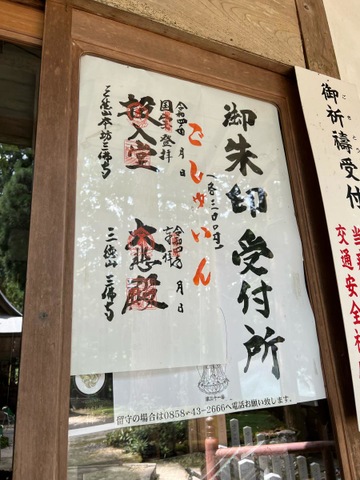 御朱印受付所
ごしゅいん
一名三〇〇円
令和四年 月 日
国宝登拝
投入堂
三徳山三佛寺
令和四年 月 日
大悲殿
三徳山 三佛寺
留守の場合は0858-43-2666へ電話お願い致します。
御祈禱受付
交通安全